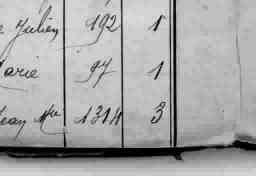 Julien 192 1
Marie 97 1
Jean Mie 1314 3